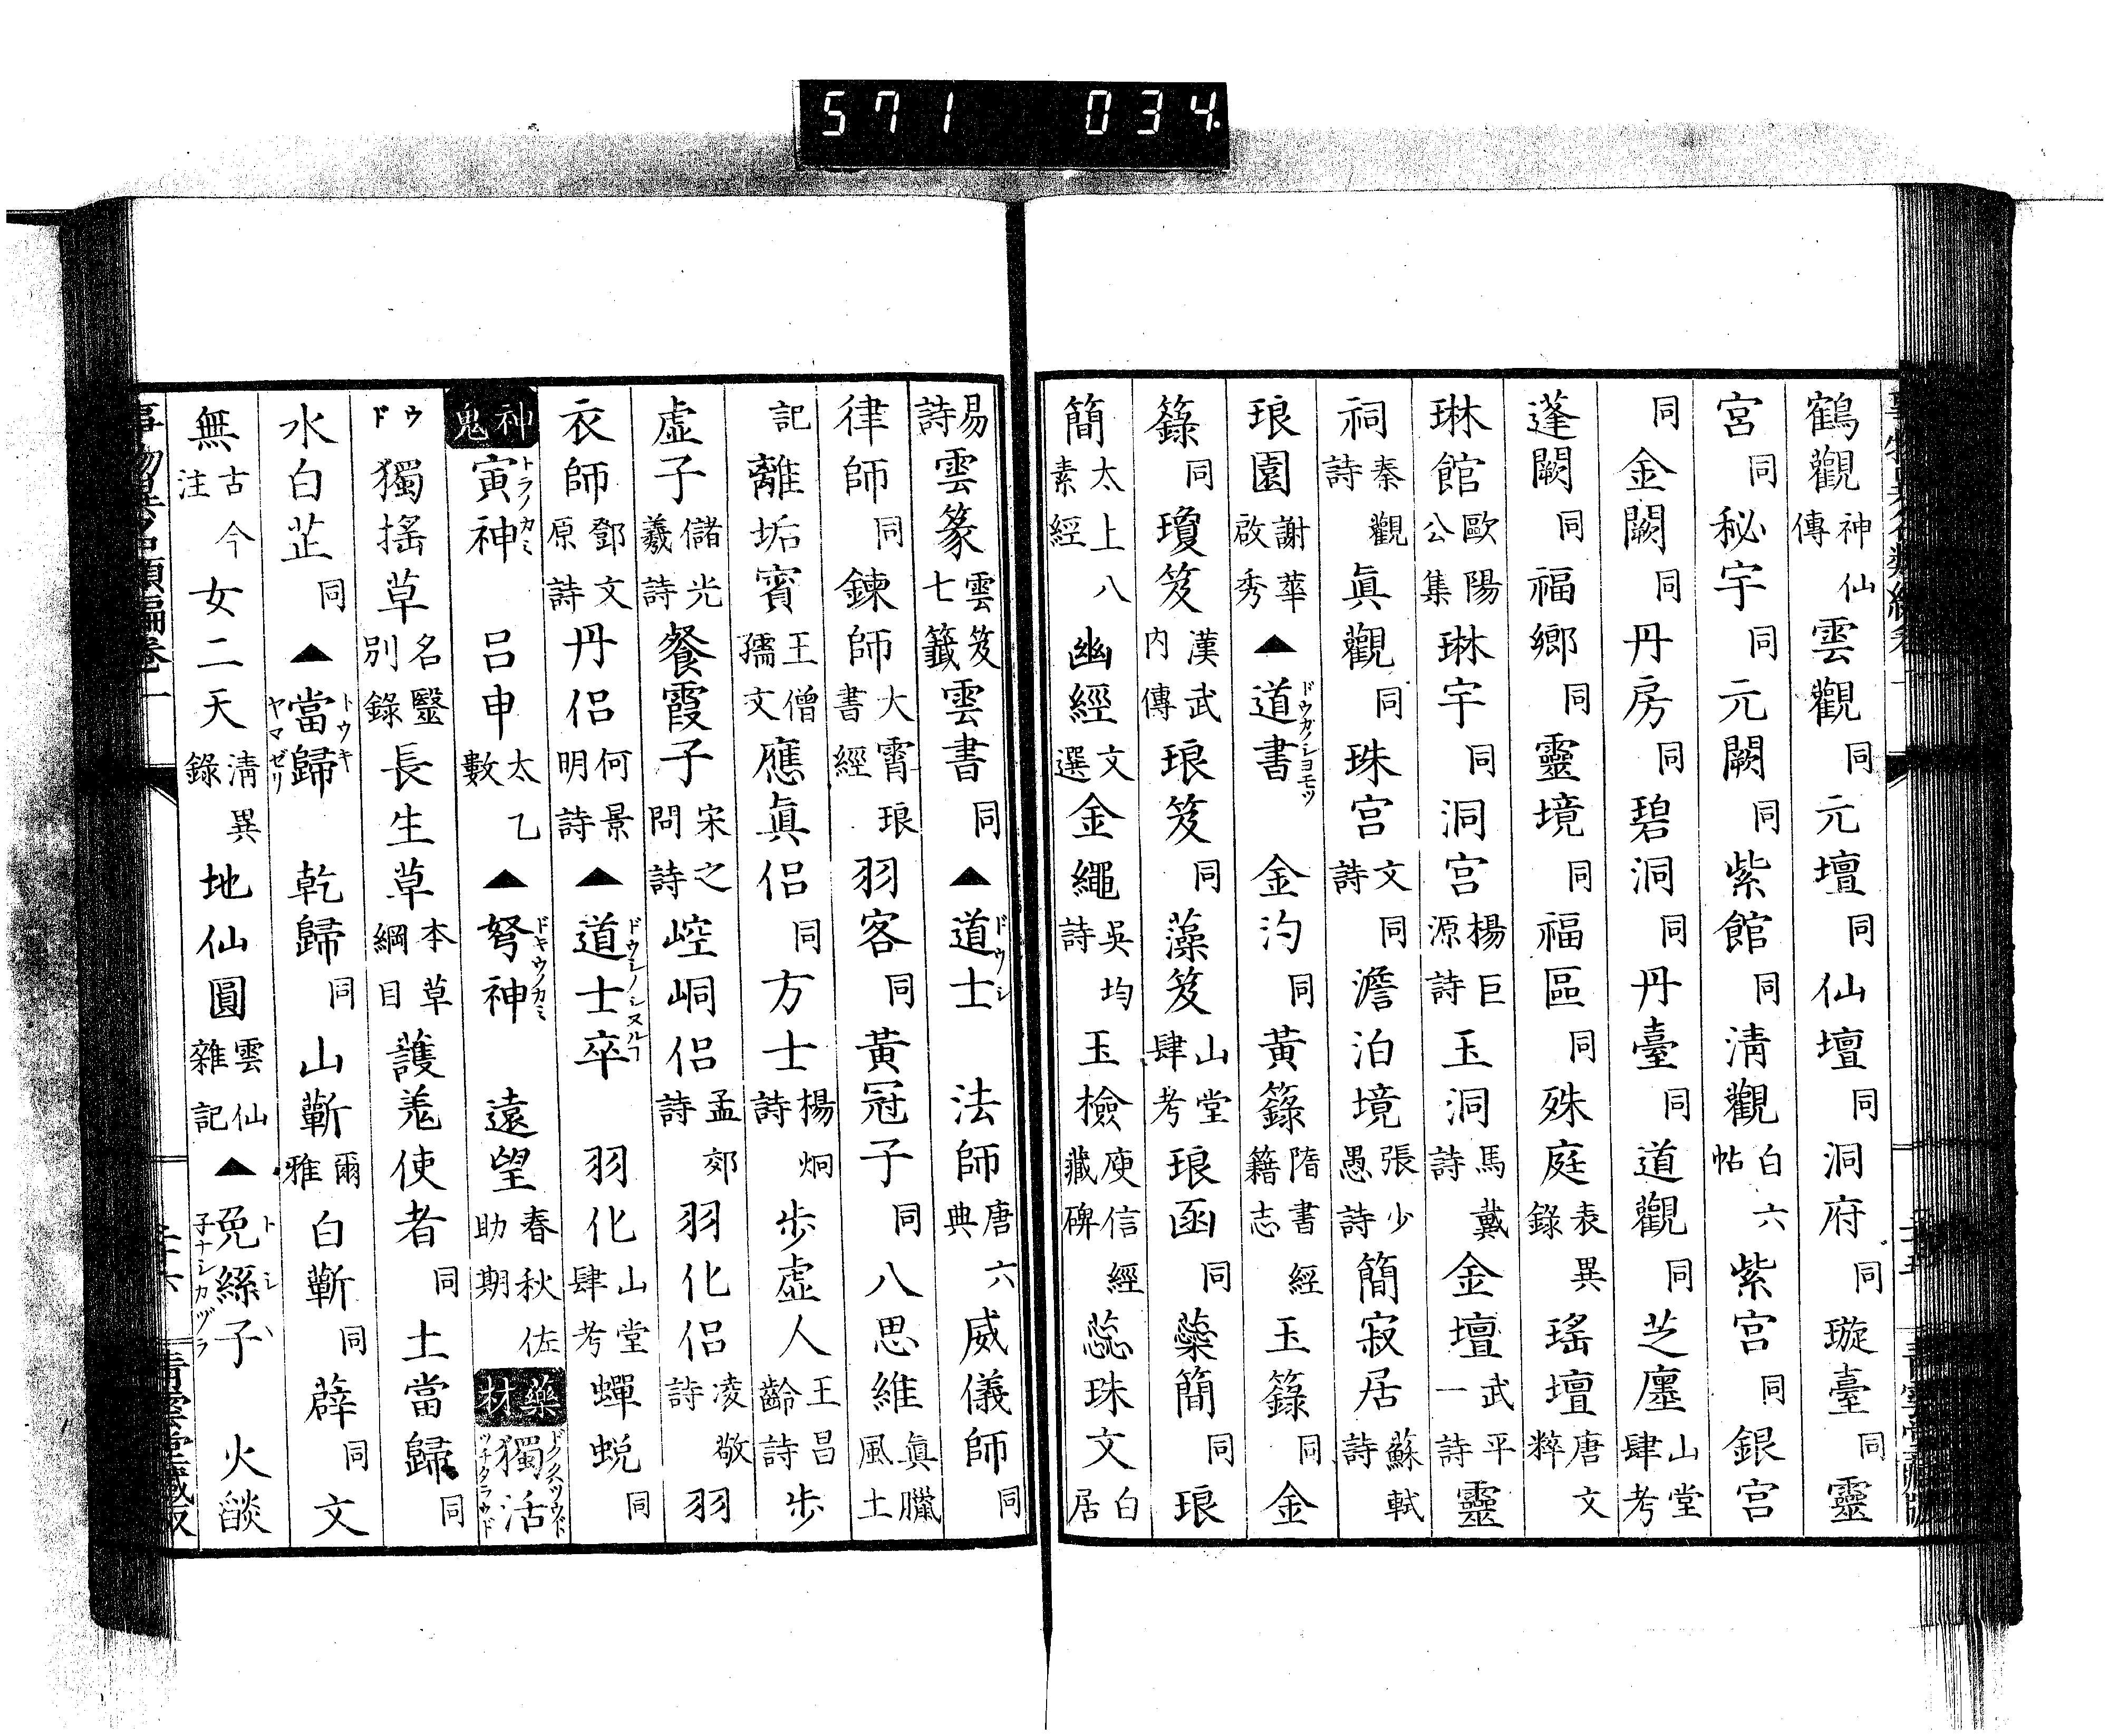 571 034
鶴觀神仙傳雲觀同元壇同仙壇同洞府同璇臺同靈
宮同秘宇同元闕同紫館同淸觀白六帖紫宮同銀宮
同金闕同丹房同碧洞同丹臺同道觀同芝廛山堂肆考
蓬闕同福鄉同靈境同福區同殊庭表異錄瑤壇唐文粹
琳館歐陽公集琳宇同洞宮楊巨源詩玉洞馬戴詩金壇武平一詩靈
祠秦觀詩眞觀同珠宮文同詩澹泊境張少愚詩簡寂居蘇軾詩
琅園謝華啟秀▲道書ドウガクノシヨモツ金汋同黃籙隋書經籍志玉籙同金
籙同瓊笈漢武內傳琅笈同藻笈山堂肆考琅函同蘂簡同琅
簡太上八素經幽經文選金繩吳均詩玉檢庾信經藏碑蕊珠文白居
易詩雲篆雲笈七籤雲書同▲道士ドウシ法師唐六典威儀師同
律師同鍊師大霄琅書經羽客同黃冠子同八思維眞臘風土
記離垢賓王僧孺文應眞侶同方士楊炯詩步虛人王昌齡詩步
虛子儲光羲詩餐霞子宋之問詩崆峒侶孟郊詩羽化侶凌敬詩羽
衣師鄧文原詩丹侶何景明詩▲道士卒ドウシノシヌルヿ羽化山堂肆考蟬蛻同
神鬼寅神トラノカミ呂申太乙數▲弩神ドキウノカミ遠望春秋佐助期藥材獨活ドククスツウドツチタラウド
ウド獨搖草名醫別錄長生草本草綱目護羗使者同土當歸同
水白芷同▲當歸トウキヤマゼリ乾歸同山蘄爾雅白蘄同薜同文
無古今注女二天淸異錄地仙圓雲仙雜記▲兔絲子トシシ子ナシカヅラ火燄